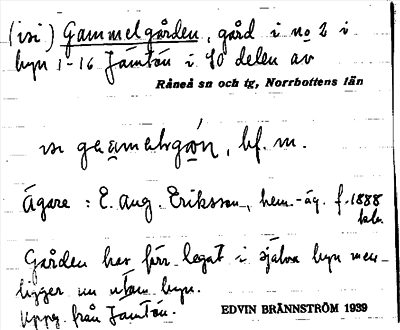 (isi) Gammelgården, gård i no 2 i
byn 1-16 Jämtön i SO delen av
Råneå sn och tg, Norrbottens län
geamelgón, bf. m.
Ägare : E. Aug. Eriksson, hem.-äg. f. 1888
Gården har förr legat i själva byn men
ligger nu utom byn.
Uppg. från Jämtön.
EDVIN BRÄNNSTRÖM 1939